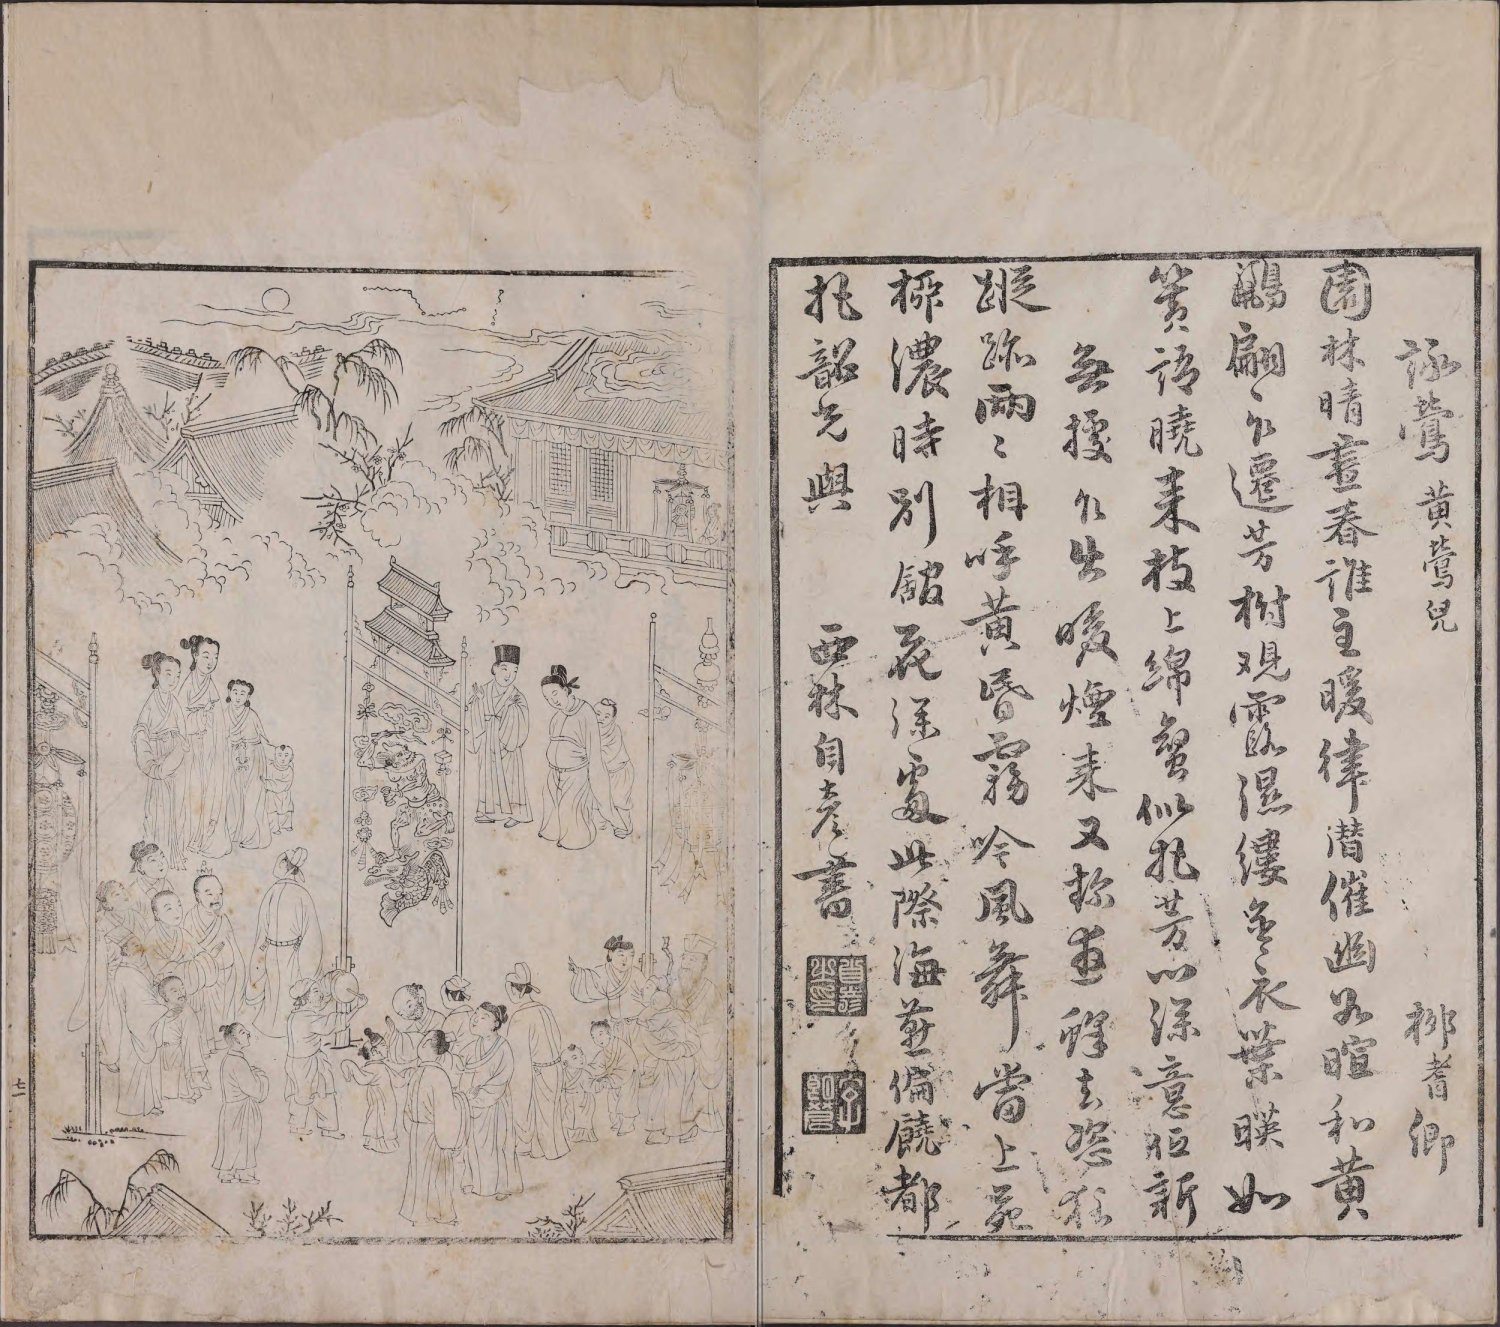 詠鶯 黃鶯兒 柳耆卿
園林晴晝春誰主暖律潛催幽谷暄和黃
鸝翩〻乍遷芳樹觀露濕縷金衣葉暎如
簧語曉來枝上綿蠻似把芳心深意低訴
無據乍出暖煙來又趁遊蜂去恣狂
蹤跡兩〻相呼黃昏霧吟風舞當上苑
柳濃時別館花深處此際海燕偏饒都
把韶光與 西林自彥書
七二